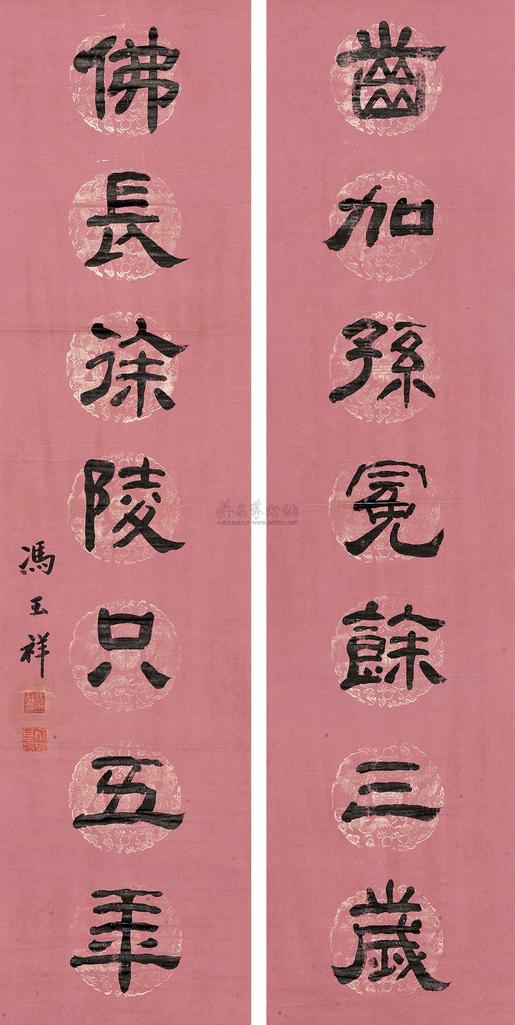 齒加孫冕餘三歲
佛長徐陵只五年
馮玉祥